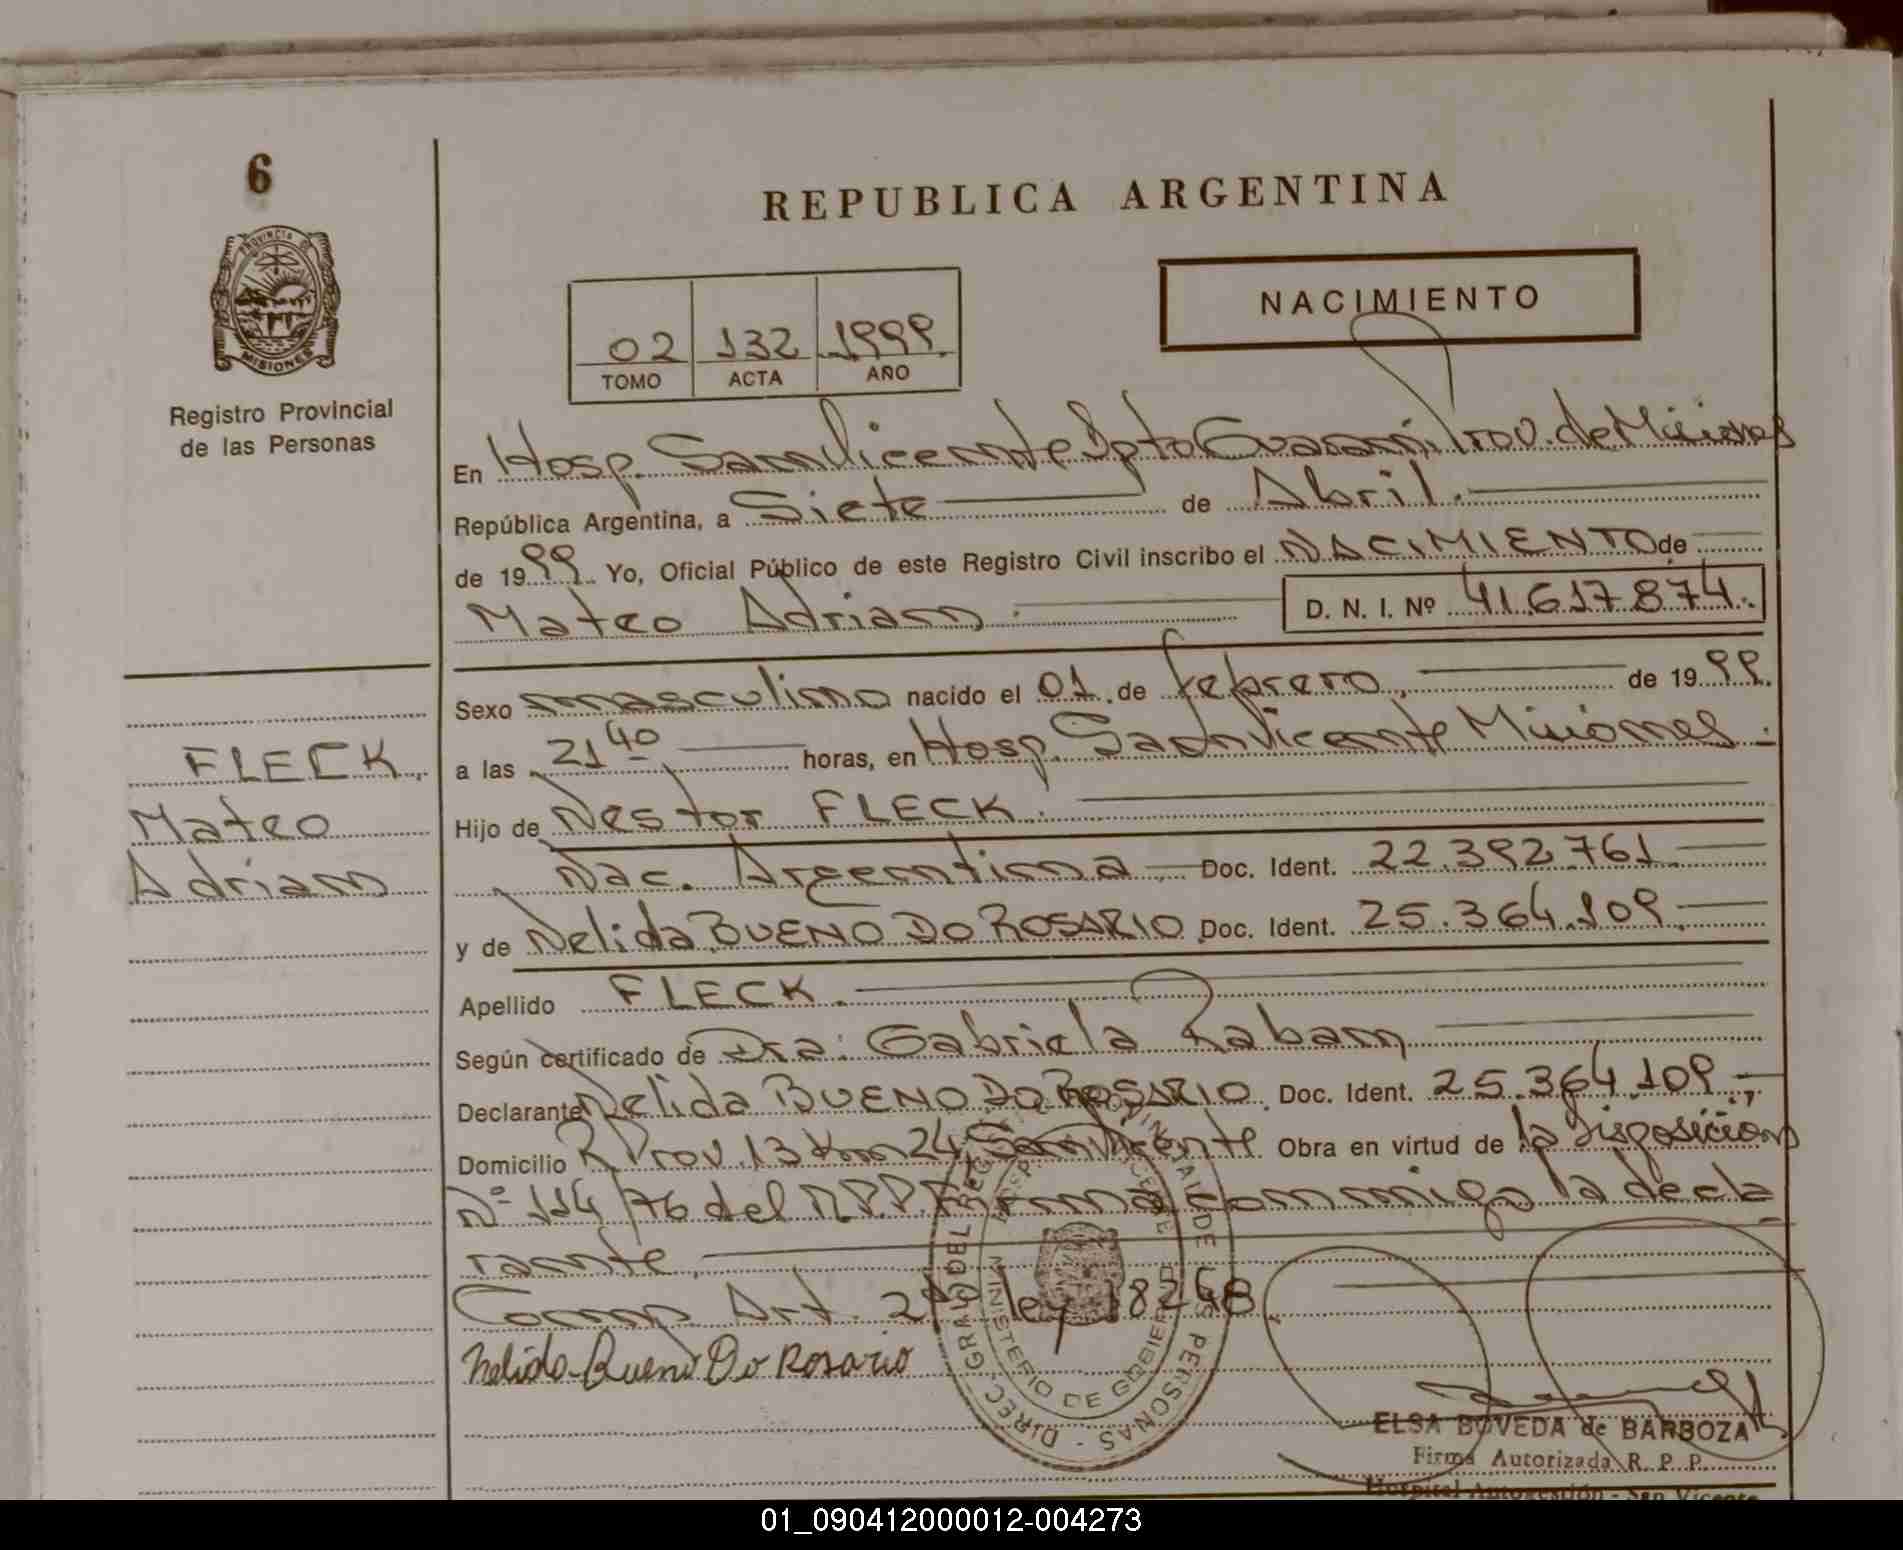 6
PROVINCIA DE
MISIONES
Registro Provincial
de las Personas
FLECK,
Mateo
Adrian
REPUBLICA ARGENTINA
NACIMIENTO
02 132 1999.
TOMO ACTA AÑO
En Hosp. San Vicente Dpto Guaraní, Prov. de Misiones
República Argentina, a Siete de Abril.
de 1999. Yo, Oficial Público de este Registro Civil inscribo el NACIMIENTO de
Mateo Adrian. D. N. I. Nº 41.617.874.
Sexo masculino nacido el 01 de febrero, de 1999.
a las 21 40 horas, en Hosp. San Vicente Misiones.
Hijo de Nestor FLECK.
Nac. Argentina, Doc. Ident. 22.392.761
y de Nelida BUENO DO ROSARIO Doc. Ident. 25.364.109
Apellido FLECK.
Según certificado de Dra: Gabriela Raban
Declarante Nelida BUENO DO ROSARIO. Doc. Ident. 25.364.109
Domicilio R. Prov. 13 Km 24, San Vicente Obra en virtud de la Disposición
Nº 114/76 del R.P.P. Firma conmigo la decla
rante.
Comp. Art. 2do ley 18248.
Nelida Bueno Do Rosario
DIREC. GRAL. DEL REG. PROVINCIAL DE LAS PERSONAS
MINISTERIO DE GOBIERNO
ELSA BOVEDA de BARBOZA
Firma Autorizada R. P. P.
Hospital Autogestión - San Vicente
01_090412000012-004273